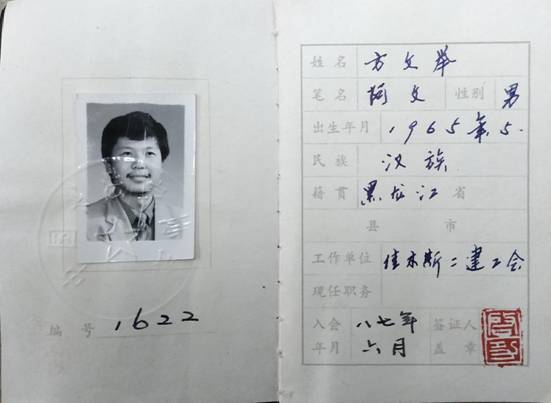 编 号 1622
姓 名 方文举
笔 名 阿文 性别 男
出生年月 1965年5.
民 族 汉族
籍 贯 黑龙江 省
县 市
工作单位 佳木斯二建工会
现任职务
入会 八七年 签证人
年月 六月 盖 章